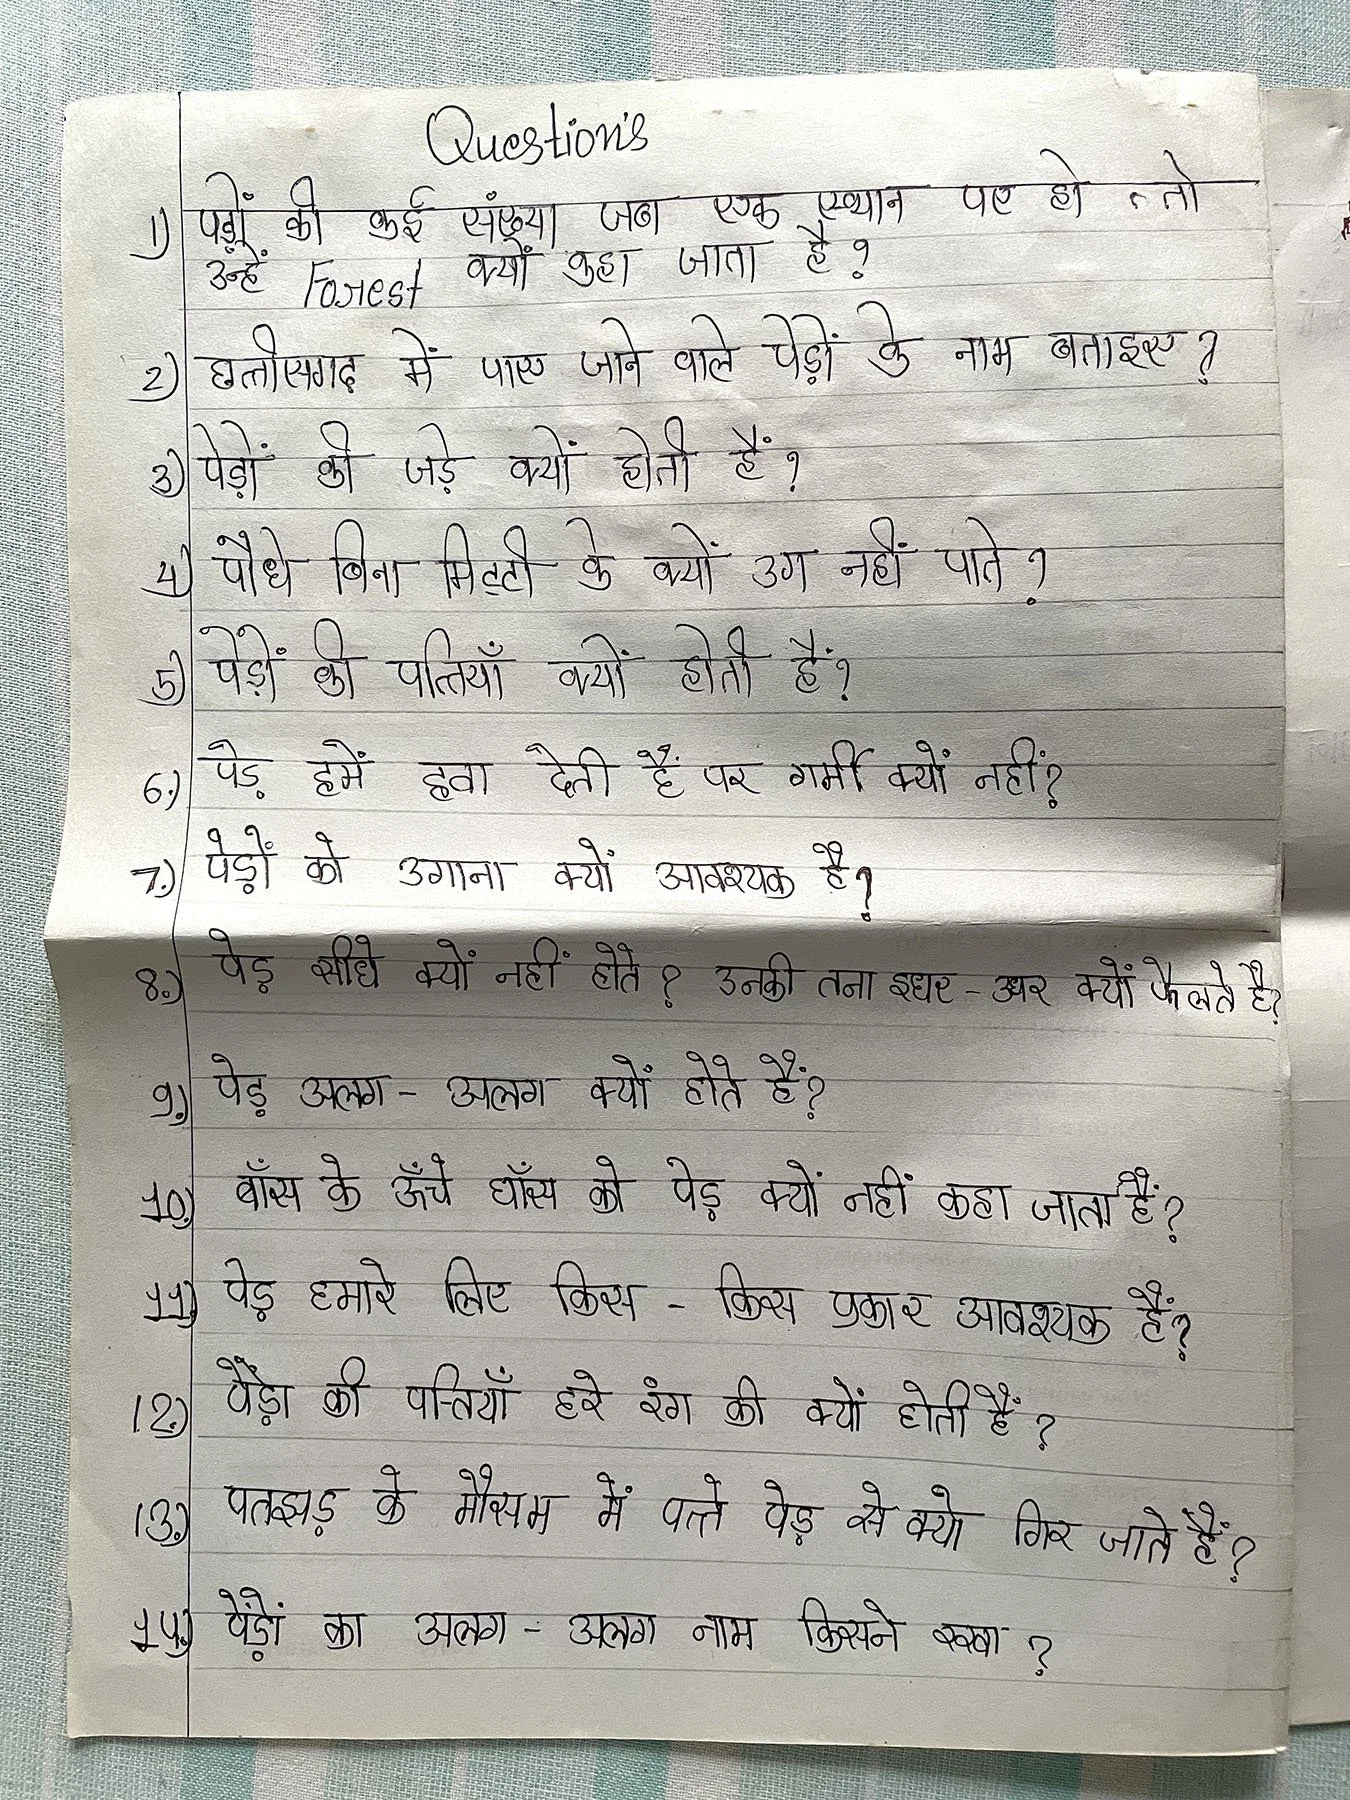 Question's
1) पेड़ों की कई संख्या जब एक स्थान पर हो तो
उन्हें Forest क्यों कहा जाता है?
2) छत्तीसगढ़ में पाए जाने वाले पेड़ों के नाम बताइए?
3) पेड़ों की जड़े क्यों होती हैं?
4) पौधे बिना मिट्टी के क्यों उग नहीं पाते?
5) पेड़ों की पत्तियाँ क्यों होती हैं?
6.) पेड़ हमें हवा देती हैं पर गर्मी क्यों नहीं?
7.) पेड़ों को उगाना क्यों आवश्यक है?
8.) पेड़ सीधे क्यों नहीं होते? उनकी तना इधर-उधर क्यों फैलते है?
9.) पेड़ अलग-अलग क्यों होते हैं?
10.) बाँस के ऊँचे घाँस को पेड़ क्यों नहीं कहा जाता हैं?
11.) पेड़ हमारे लिए किस-किस प्रकार आवश्यक हैं?
12.) पेड़ों की पत्तियाँ हरे रंग की क्यों होती हैं?
13.) पतझड़ के मौसम में पत्ते पेड़ से क्यो गिर जाते हैं?
14.) पेंड़ों का अलग-अलग नाम किसने रखा?